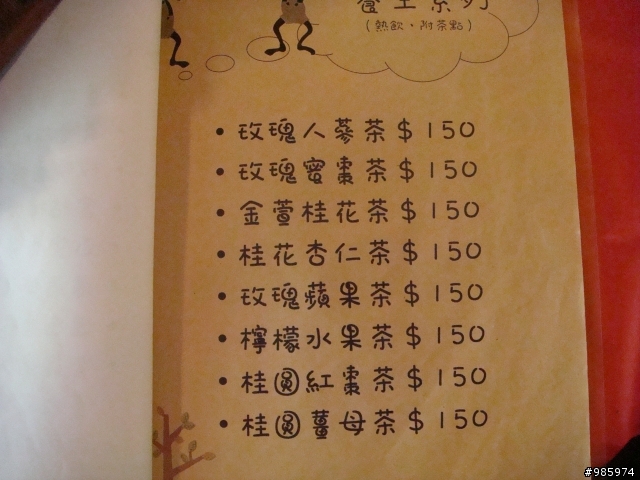 養生系列
(熱飲·附茶點)
• 玫瑰人蔘茶 $150
• 玫瑰蜜棗茶 $150
• 金萱桂花茶 $150
• 桂花杏仁茶 $150
• 玫瑰蘋果茶 $150
• 檸檬水果茶 $150
• 桂圓紅棗茶 $150
• 桂圓薑母茶 $150
#985974